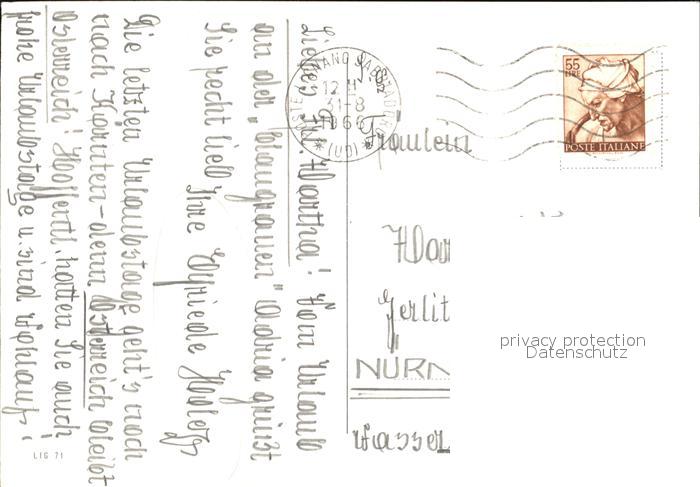 Liebes Frl. Martha! Vom Urlaub
an der „blaugrauen" Adria grüßt
Sie recht lieb Ihre Elfriede
Die letzten Urlaubstage geht's noch
nach Kärnten-denn Österreich bleibt
Österreich! Hoffentl. hatten Sie auch
frohe Urlaubstage u. sind wohlauf!
LIG 71
12 H
31-8
1966
(UD)
55
LIRE
POSTE ITALIANE
Fräulein
Mar
Gerlit
NÜRN
Wasser
privacy protection
Datenschutz